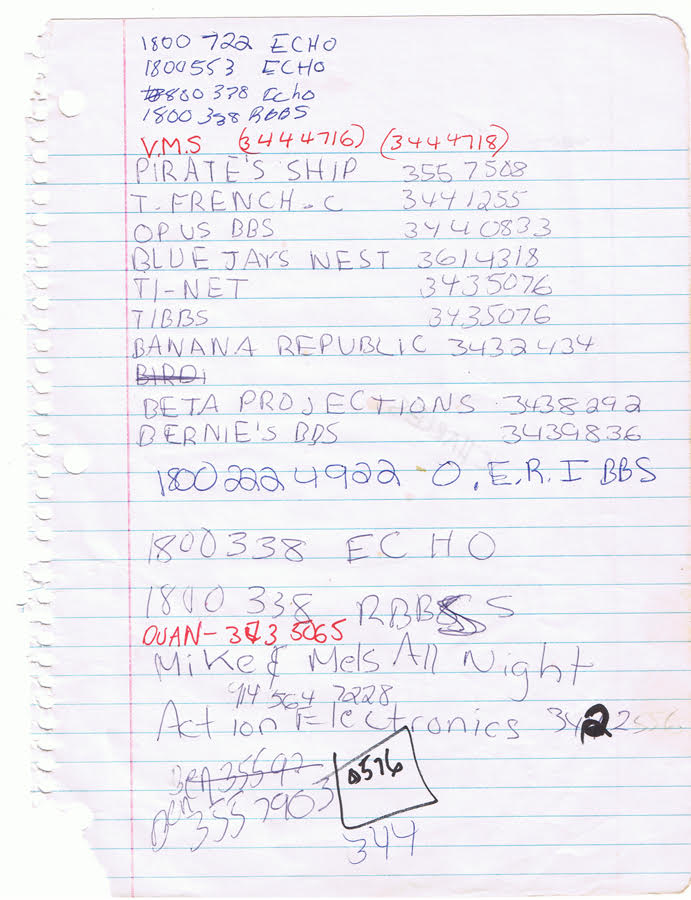 1800 722 ECHO
1800553 ECHO
1800 378 Echo
1800 338 RBBS
V.M.S (3444716) (3444718)
PIRATE'S SHIP 355 7508
T. FRENCH-C 3441255
OPUS BBS 3440833
BLUE JAYS NEST 3614318
TI-NET 3435076
TIBBS 3435076
BANANA REPUBLIC 3432434
BIRD
BETA PROJECTIONS 3438292
BERNIE'S BBS 3439836
1800 222 4922 - O.E.R.I BBS
1800338 ECHO
1800 338 RBBS S
DUAN- 343 5065
Mike & Mels All Night
914 564 7228
Action Electronics 3422556
Ben 35592
Ben 355 7903
0576
344